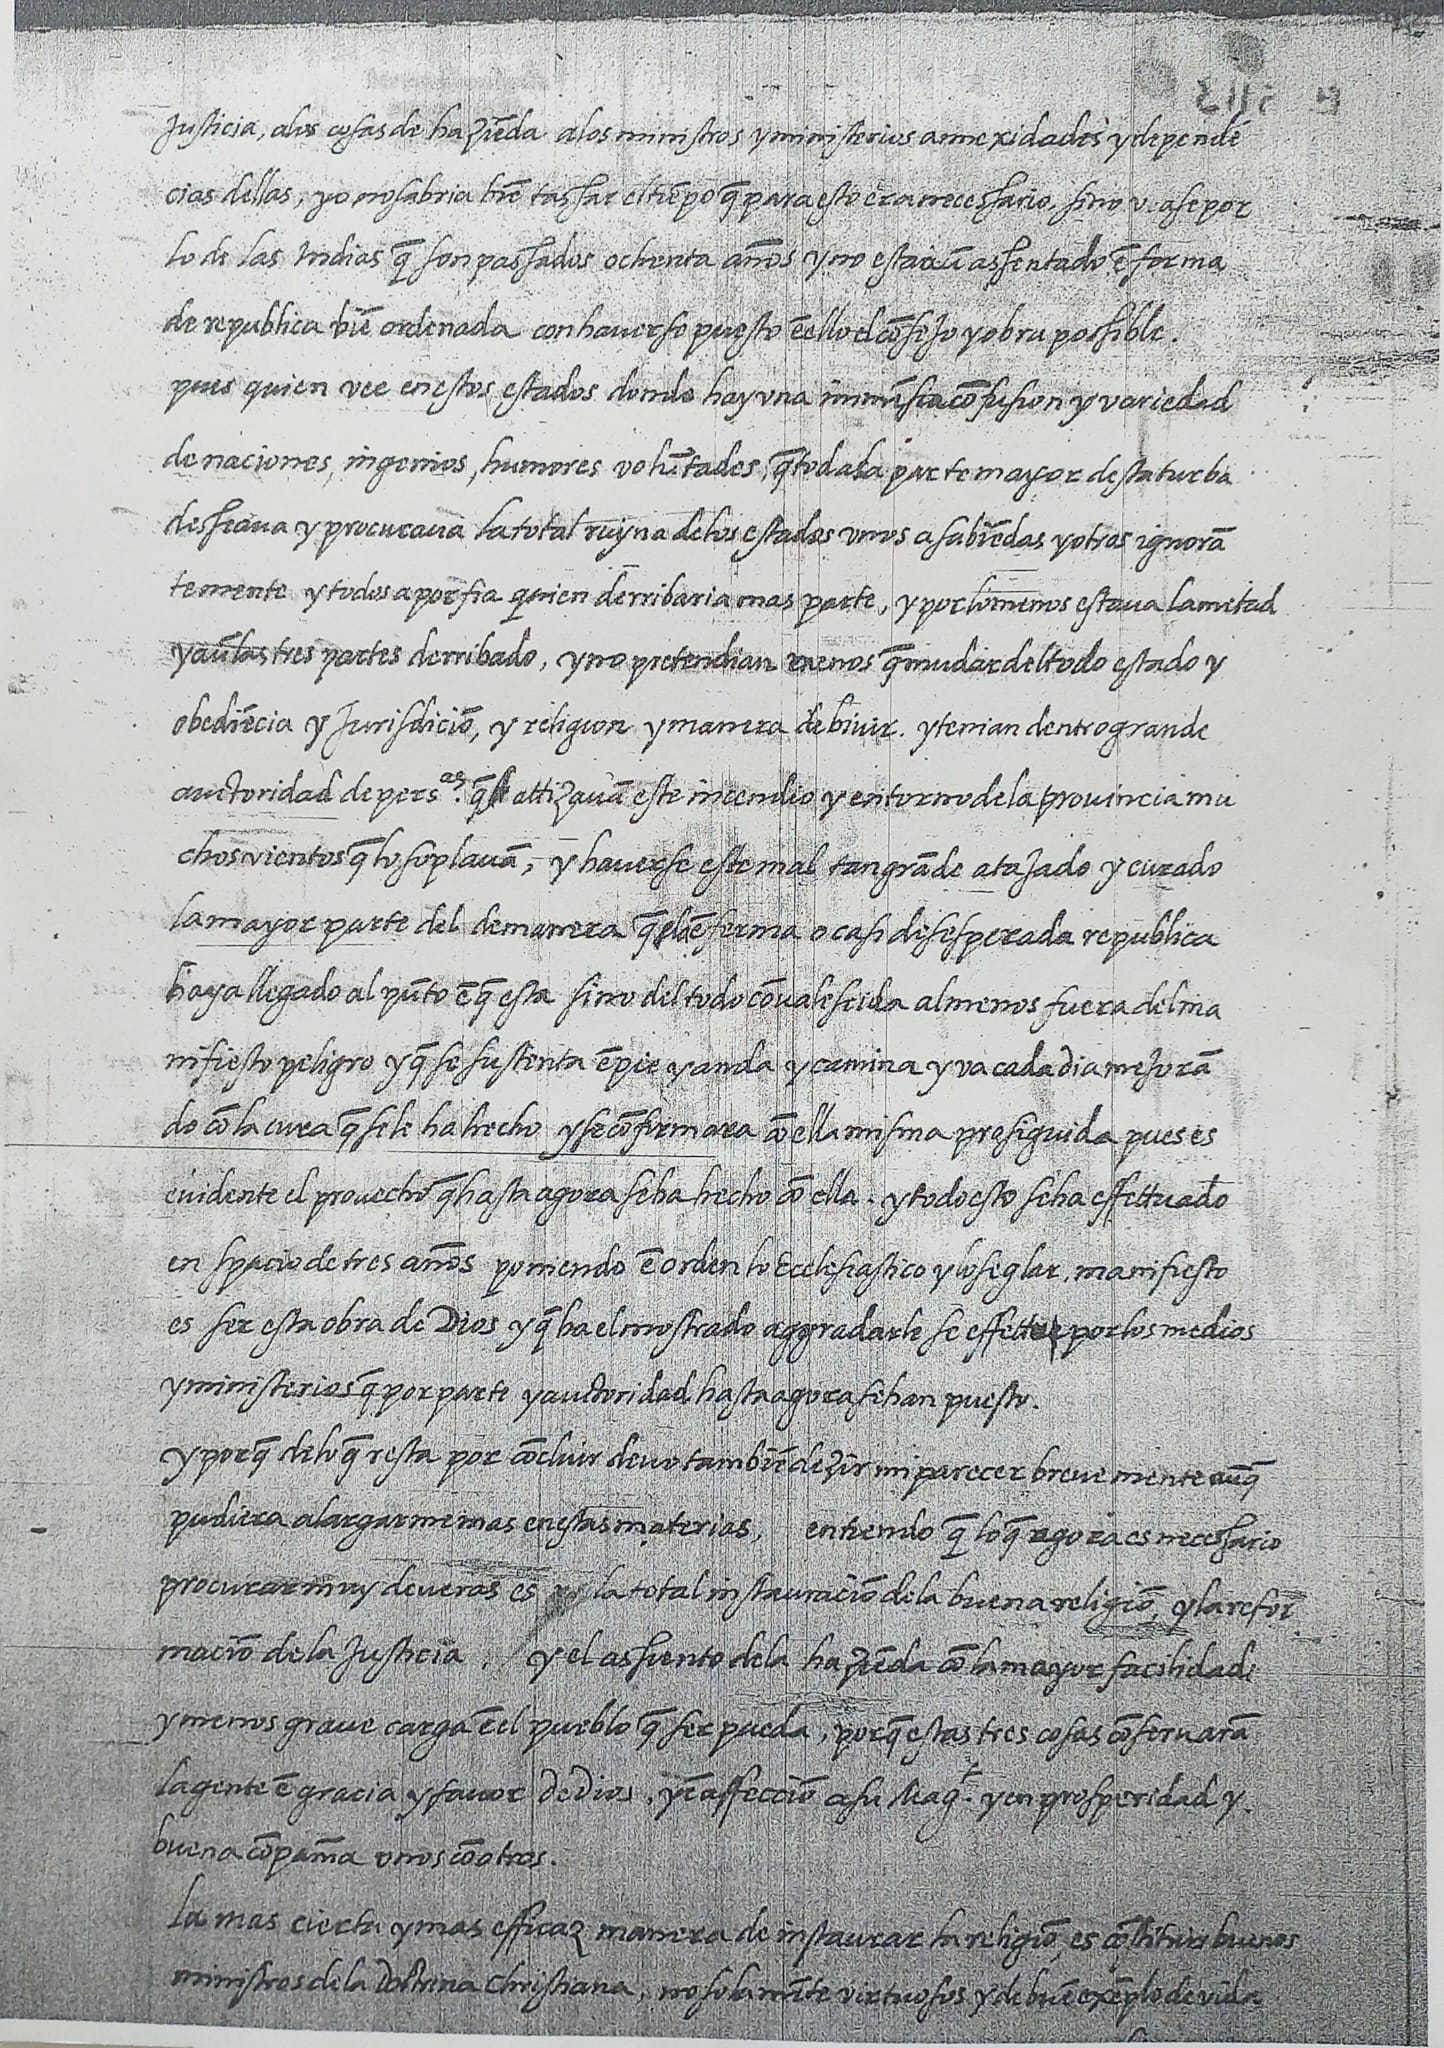 Justicia, alas cosas de hazieda alos ministros y ministerios annexidades y dependē
cias dellas, yo no sabria biē tassar el tiēpo q̄ para esto era necessario. sino vease por
lo de las Indias q̄ son passados ochenta años y no estarā assentado ē forma
de republica biē ordenada con haverse puesto ē ello el cōsejo y obra possible.
pues quien vee en estos estados donde hay vna confusion y variedad
de naciones, ingenios, humores volūtades, q̄ toda la parte mayor desta turba
desseaua y procuraua la total ruyna de los estados vnos a sabiēdas y otros ignorā
temente y todos a porfia quien derribaria mas parte, y por lo menos estaua la metad
y aū las tres partes derribado, y no pretendian menos q̄ mudar del todo estado y
obediēcia y Jurisdiciō, y religion y manera de biuir. y tenian dentro grande
auctoridad de pers.as q̄ attizauā este incendio y entorno de la prouincia mu
chos vientos q̄ lo soplauā, y hauerse este mal tan grāde atajado y curado
la mayor parte del de manera q̄ la ēferma o casi desesperada republica
haya llegado al pūto ē q̄ esta sino del todo cōualescida al menos fuera del ma
nifiesto peligro y q̄ se sustenta ē pie y anda y camina y va cada dia mejorā
do cō la cura q̄ se le ha hecho y se cōfirmara cō ella misma proseguida pues es
euidente el prouecho q̄ hasta agora se ha hecho cō ella. y todo esto se ha effettuado
en spacio de tres años poniendo ē orden lo Ecclesiastico y lo seglar, manifiesto
es ser esta obra de Dios y q̄ ha el mostrado aggradarle se por los medios
y ministerios q̄ por parte y auctoridad hasta agora se han puesto.
y porq̄ de lo q̄ resta por cōcluir deuo tambiē dezir mi parecer breue mente aūq̄
pudiera alargarme mas en estas materias, entiendo q̄ lo q̄ agora es necessario
procurar muy de ueras es la total instauraciō de la buena religiō, y la refor
maciō de la Justicia, y el assiento de la haziēda cō la mayor facilidad
y menos graue carga ē el pueblo q̄ ser pueda, porq̄ estas tres cosas cōseruarā
la gente ē gracia y fauor de Dios, y ē affecciō a su Mag.t y en prosperidad y
buena cōpañia vnos cō otros.
La mas cierta y mas efficaz manera de instaurar la religiō es cōstituir buenos
ministros de la Doctrina Christiana, no solamēte virtuosos y de buē exēplo de vida